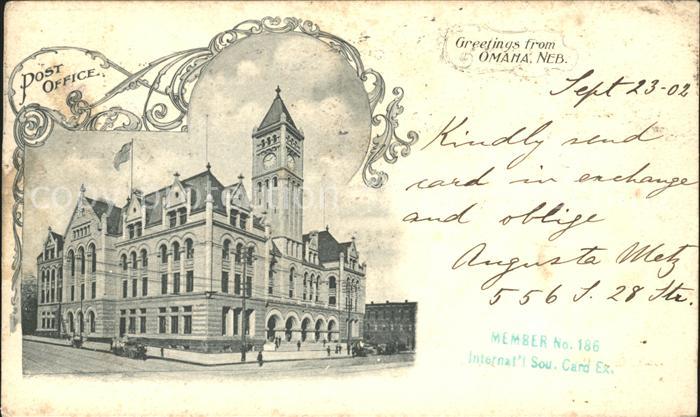 POST
OFFICE.
Greetings from
OMAHA, NEB.
Sept 23-02
Kindly send
card in exchange
and oblige
Augusta Metz
556 S. 28 Str.
MEMBER No. 186
Internat'l Sou. Card Ex.